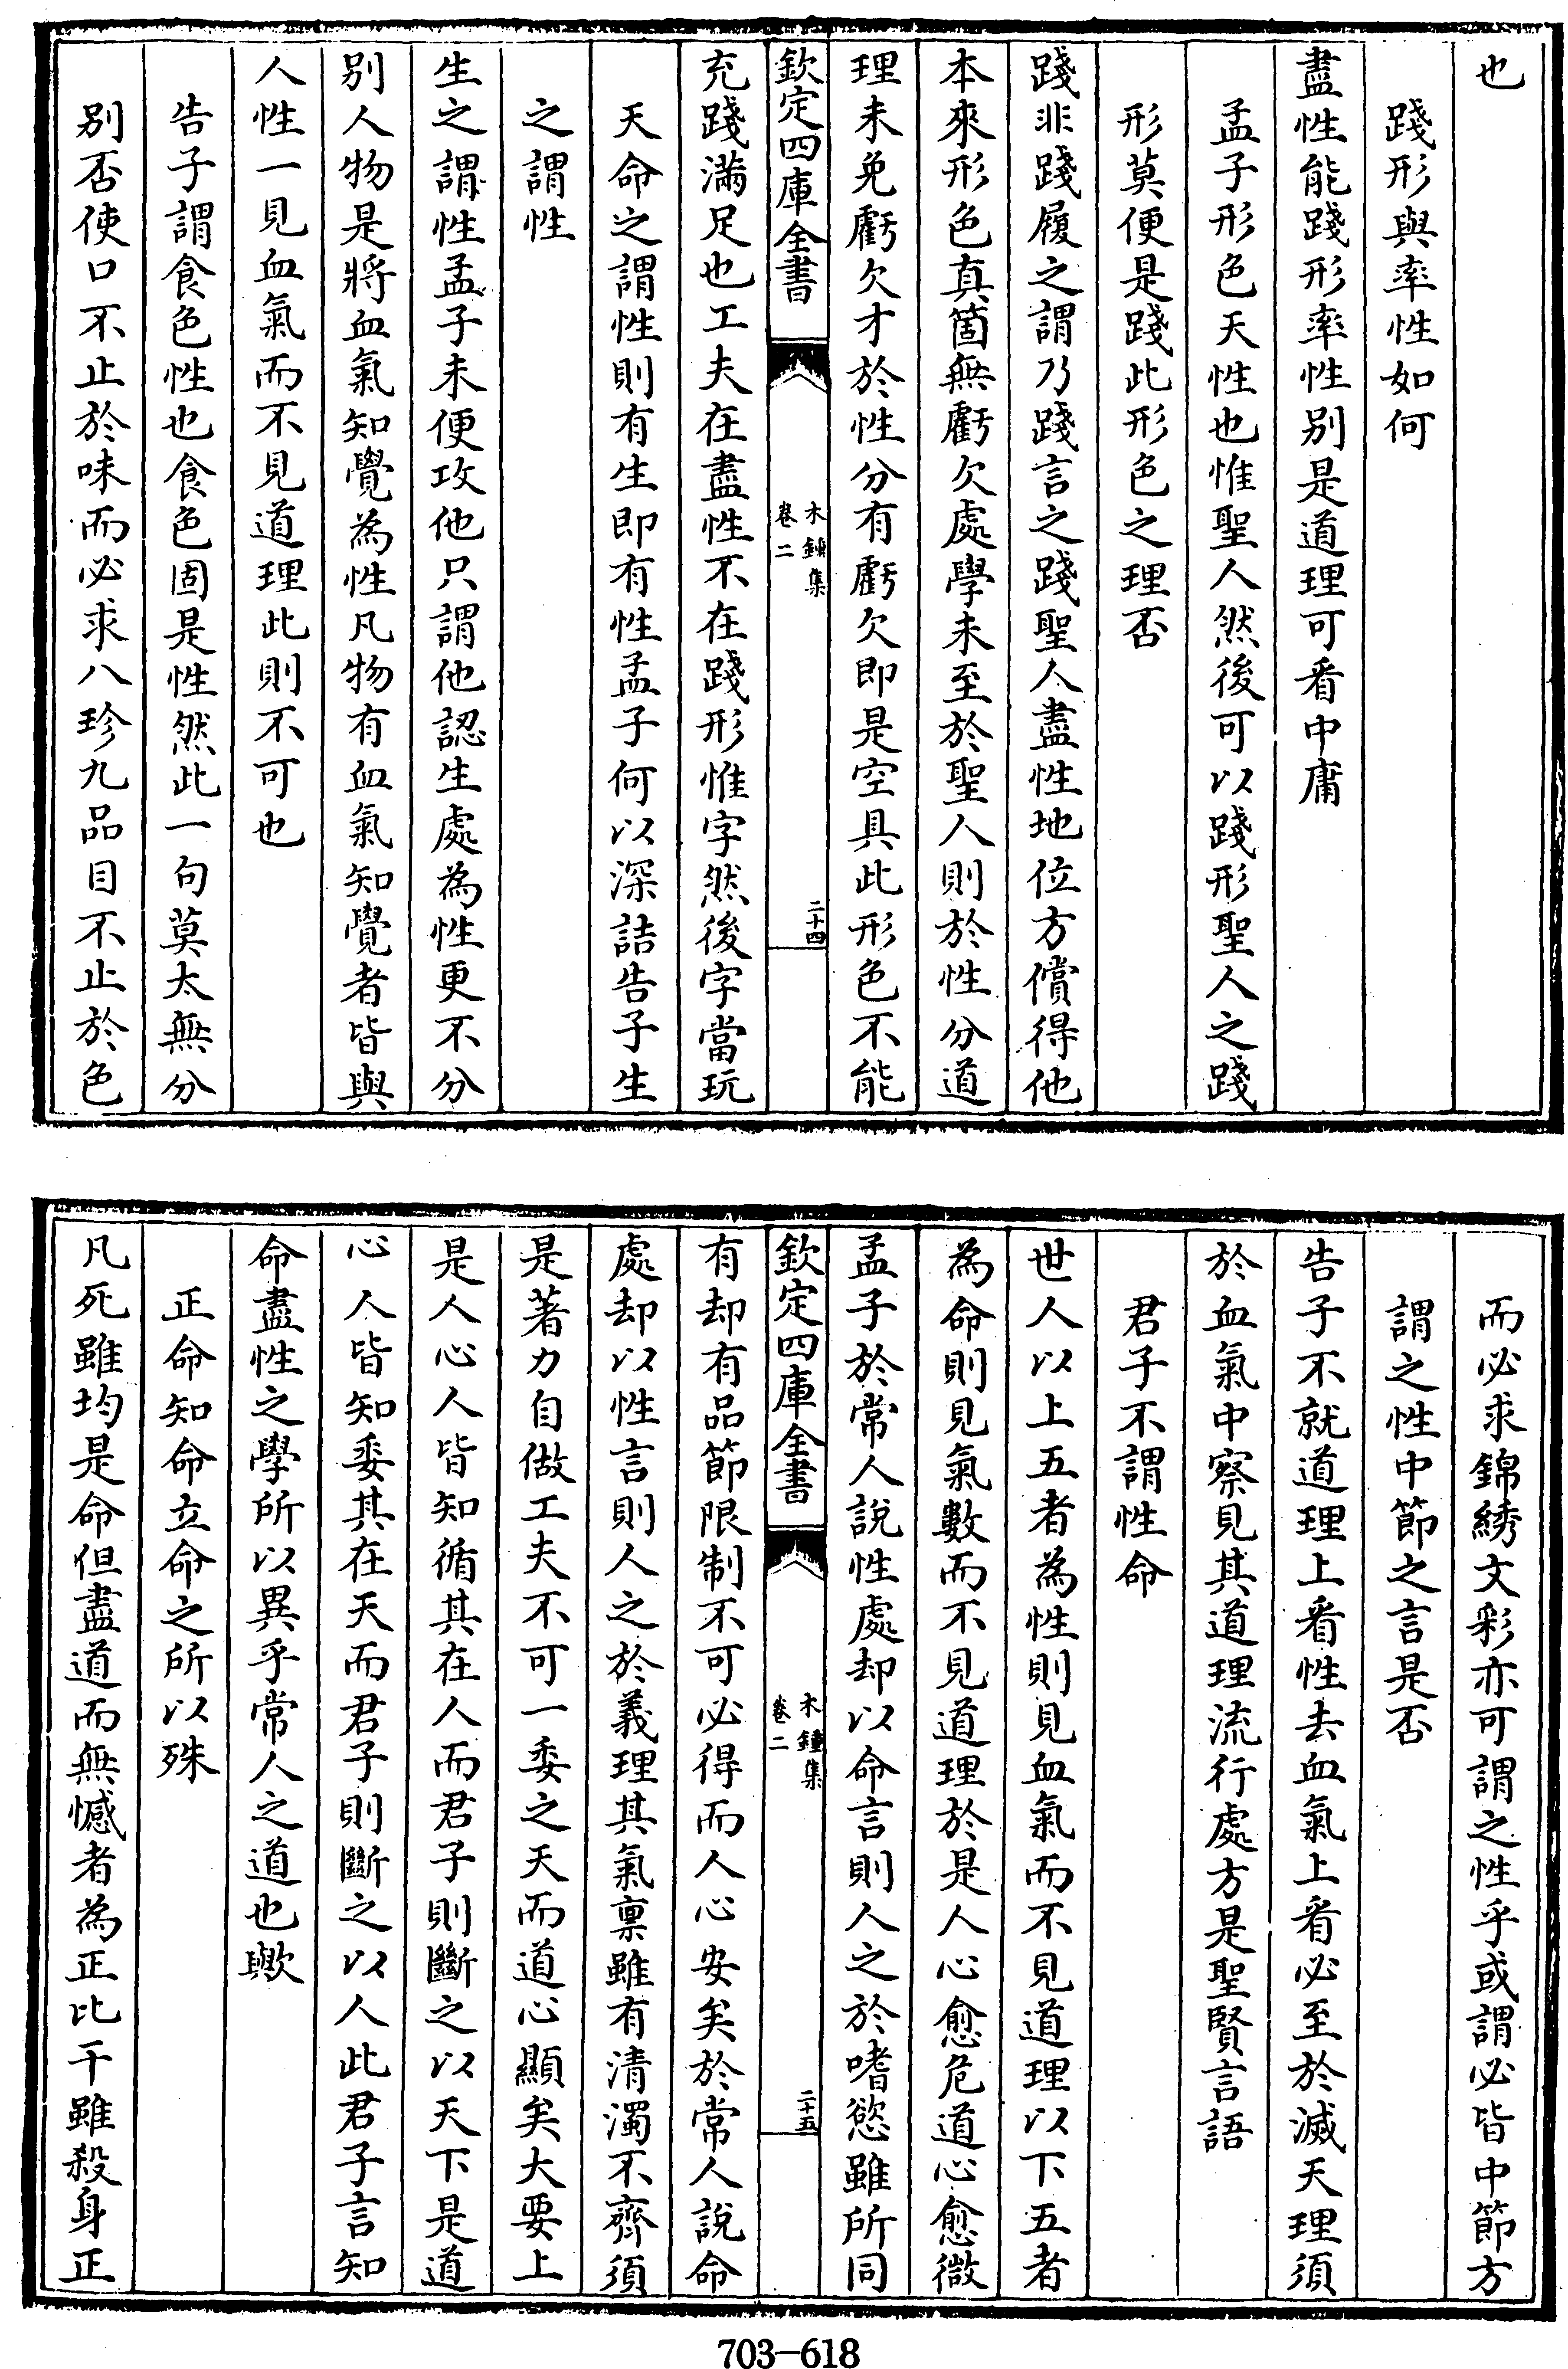 也
踐形與率性如何
盡性能踐形率性别是道理可看中庸
孟子形色天性也惟聖人然後可以踐形聖人之踐
形莫便是踐此形色之理否
踐非踐履之謂乃踐言之踐聖人盡性地位方償得他
本來形色真箇無虧欠處學未至於聖人則於性分道
理未免虧欠才於性分有虧欠即是空具此形色不能
欽定四庫全書
木鍾集
卷二
二十四
充踐滿足也工夫在盡性不在踐形惟字然後字當玩
天命之謂性則有生即有性孟子何以深詰告子生
之謂性
生之謂性孟子未便攻他只謂他認生處為性更不分
别人物是將血氣知覺為性凡物有血氣知覺者皆與
人性一見血氣而不見道理此則不可也
告子謂食色性也食色固是性然此一句莫太無分
别否使口不止於味而必求八珍九品目不止於色
而必求錦綉文彩亦可謂之性乎或謂必皆中節方
謂之性中節之言是否
告子不就道理上看性去血氣上看必至於滅天理須
於血氣中察見其道理流行處方是聖賢言語
君子不謂性命
世人以上五者為性則見血氣而不見道理以下五者
為命則見氣數而不見道理於是人心愈危道心愈微
孟子於常人說性處却以命言則人之於嗜慾雖所同
欽定四庫全書
木鍾集
卷二
二十五
有却有品節限制不可必得而人心安矣於常人說命
處却以性言則人之於義理其氣禀雖有清濁不齊須
是著力自做工夫不可一委之天而道心顯矣大要上
是人心人皆知循其在人而君子則斷之以天下是道
心人皆知委其在天而君子則斷之以人此君子言知
命盡性之學所以異乎常人之道也歟
正命知命立命之所以殊
凡死雖均是命但盡道而無憾者為正比干雖殺身正
703-618